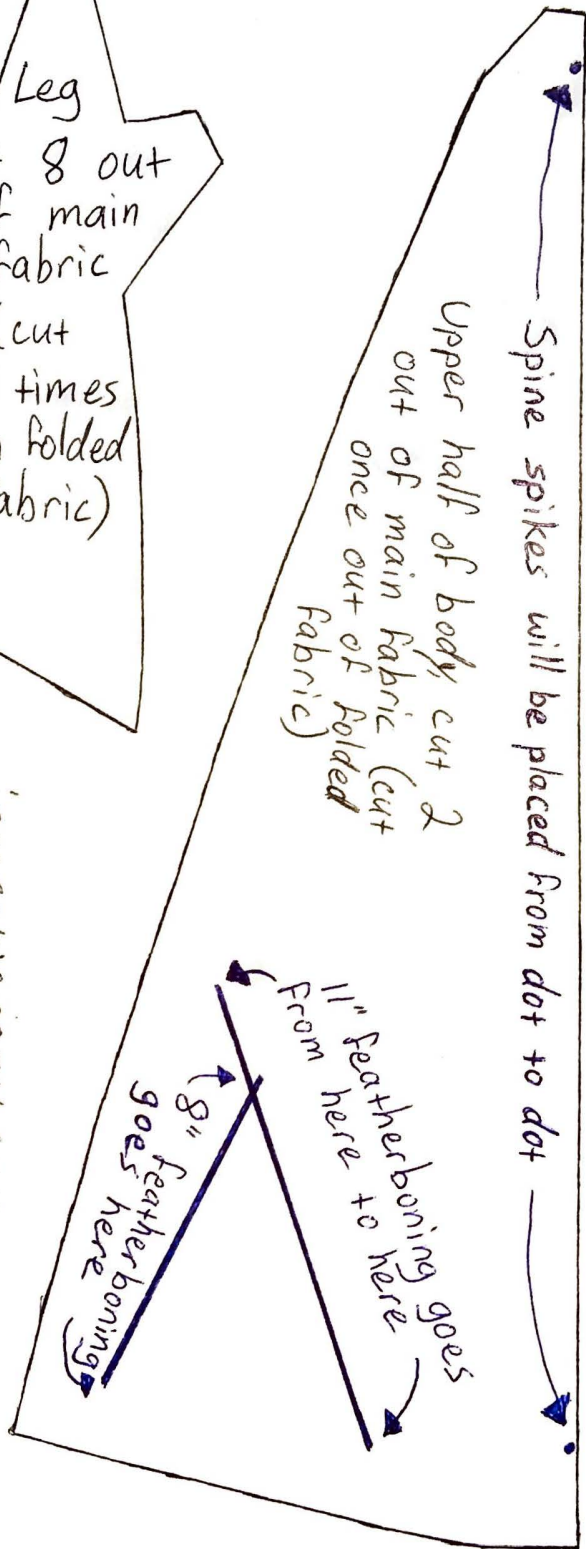 Leg
8 out
main
fabric
cut
times
folded
fabric)
Spine spikes will be placed from dot to dot
Upper half of body, cut 2
out of main fabric (cut
once out of folded
fabric)
11" featherboning goes
from here to here
8" featherboning
goes here